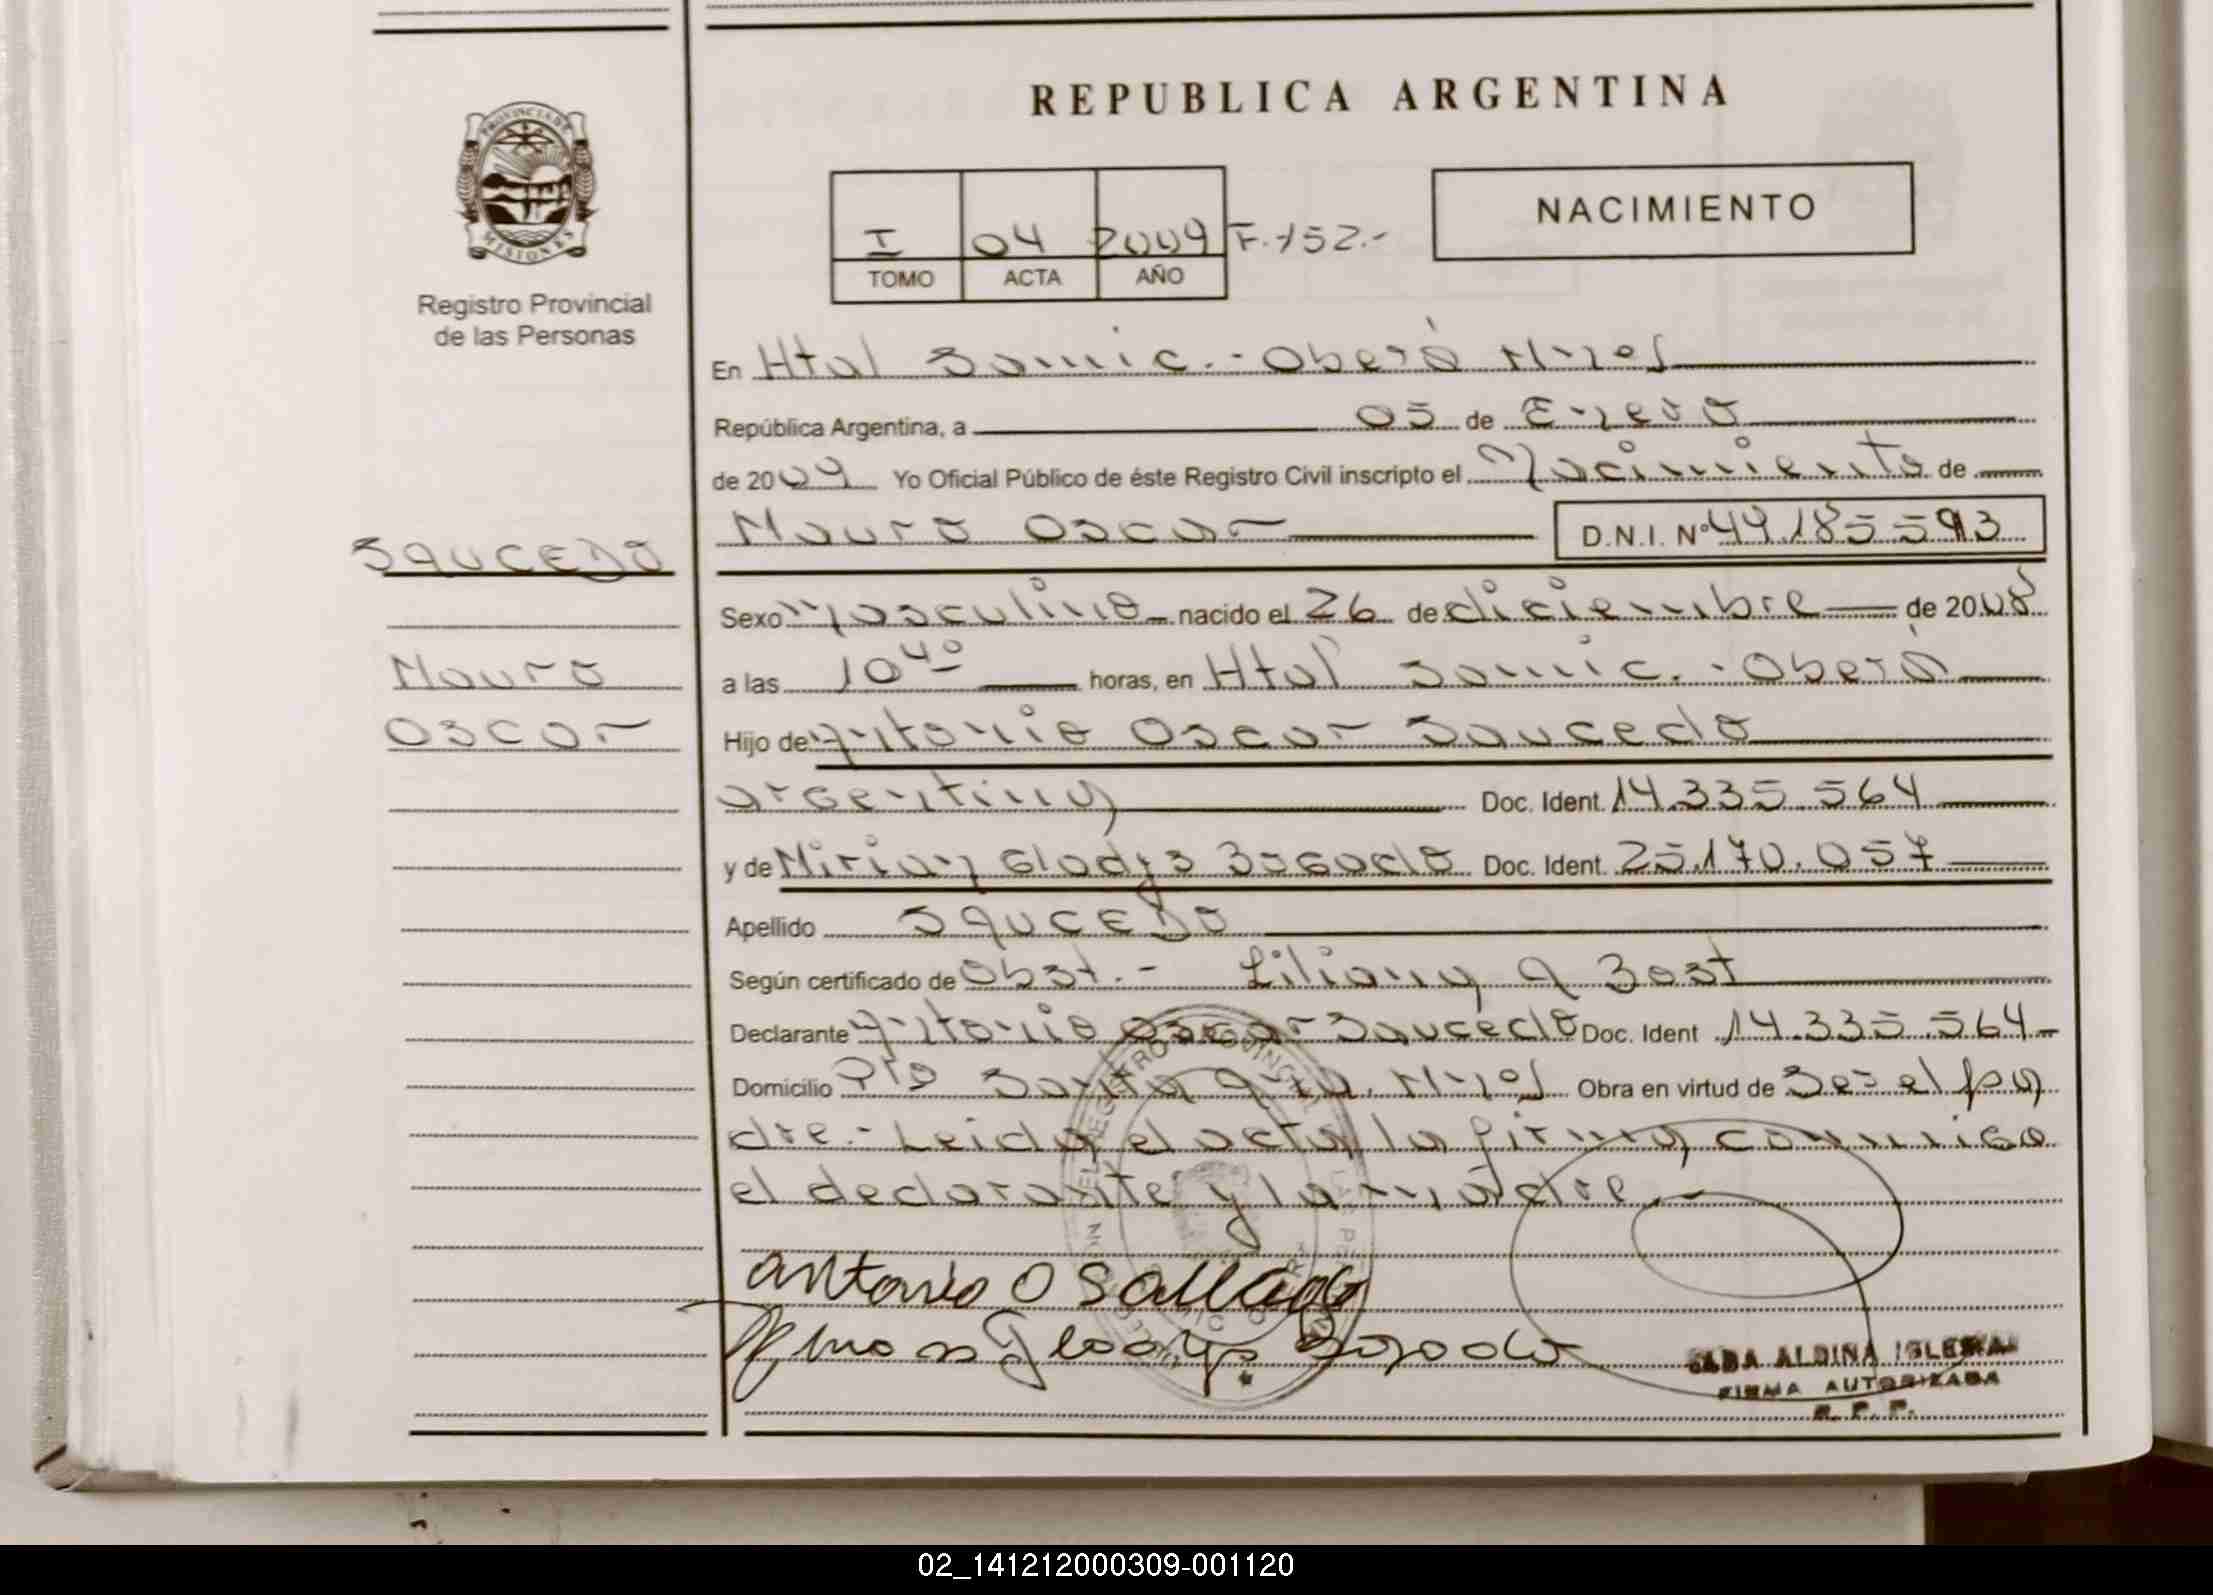 REPUBLICA ARGENTINA
PROVINCIA DE
MISIONES
Registro Provincial
de las Personas
NACIMIENTO
I 04 2009 F. 152.-
TOMO ACTA AÑO
En Htal Samic.- Oberá Mnes
República Argentina, a 05 de Enero
de 2009 Yo Oficial Público de éste Registro Civil inscripto el Nacimiento de
Mauro Oscar D.N.I. Nº 49.185.593
SAUCEDO
Mauro
Oscar
Sexo Masculino nacido el 26 de diciembre de 2008
a las 10 40 horas, en Htal Samic.- Oberá
Hijo de Antonio Oscar Saucedo
argentino Doc. Ident. 14.335.564
y de Miriam Gladys Bogado Doc. Ident. 25.170.057
Apellido SAUCEDO
Según certificado de Obst.- Liliana A Bost
Declarante Antonio Oscar Saucedo Doc. Ident 14.335.564
Domicilio Pto Santa Ana. Mnes Obra en virtud de Ser el pa
dre.- Leida el acta, la firma conmigo
el declarante y la madre.-
Antonio O
ALDINA IGLESIAS
FIRMA AUTORIZADA
R. P. P.
02_141212000309-001120